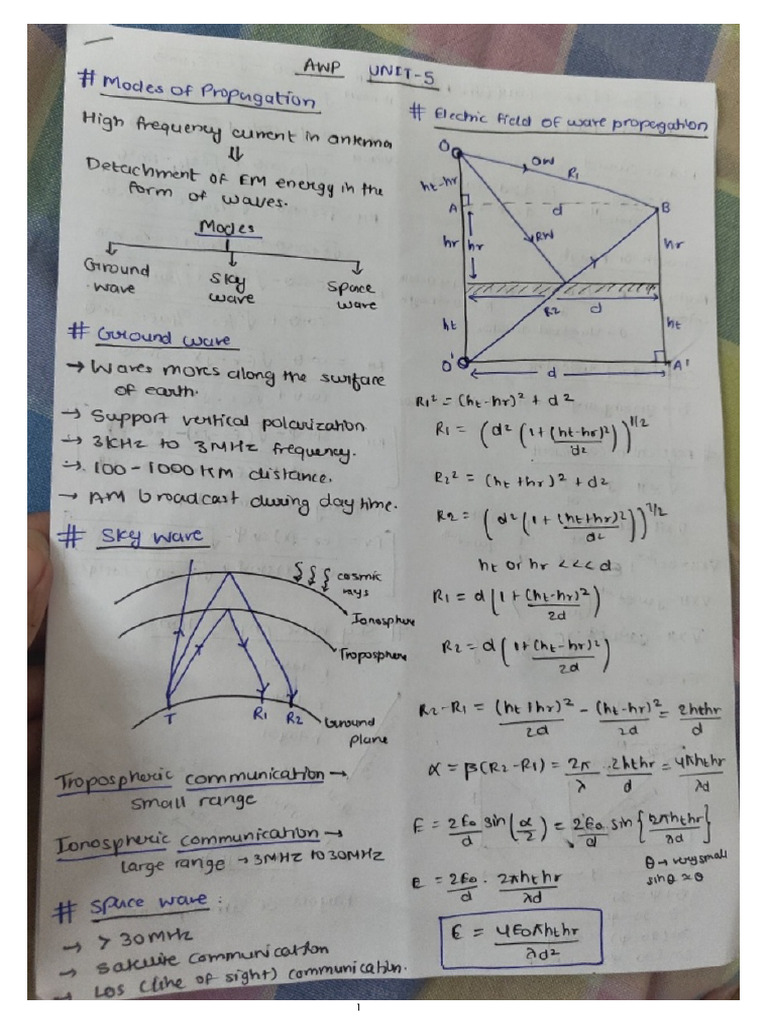 AWP UNIT-5
# Modes of Propagation
High frequency current in antenna
⇓
Detachment of EM energy in the
form of waves.
Modes
Ground wave
Sky wave
Space wave
# Ground wave
→ Waves moves along the surface
of earth.
→ Support vertical polarization
→ 3KHz to 3MHz frequency.
→ 100-1000 KM distance.
→ AM broadcast during day time.
# Sky wave
cosmic rays
Ionosphere
Troposphere
T R1 R2
Ground plane
Tropospheric communication →
small range
Ionospheric communication →
large range → 3MHz to 30MHz
# Space wave :
→ > 30MHz
→ Satellite communication
→ LOS (line of sight) communication.
# Electric field of wave propagation
O DW R1
ht-hr
A d B
hr hr RW hr
R2 d
ht ht
O' d A'
R1² = (ht-hr)² + d²
R1 = (d² (1 + (ht-hr)²/d²))^1/2
R2² = (ht+hr)² + d²
R2 = (d² (1 + (ht+hr)²/d²))^1/2
ht or hr <<< d
R1 = d (1 + (ht-hr)²/2d)
R2 = d (1 + (ht-hr)²/2d)
R2-R1 = (ht+hr)²/2d - (ht-hr)²/2d = 2hthr/d
α = β(R2-R1) = 2π/λ . 2hthr/d = 4πhthr/λd
E = 2E0/d sin(α/2) = 2E0/d sin{2πhthr/λd}
θ → very small
sinθ ≈ θ
E = 2E0/d . 2πhthr/λd
E = 4E0πhthr/λd²
1